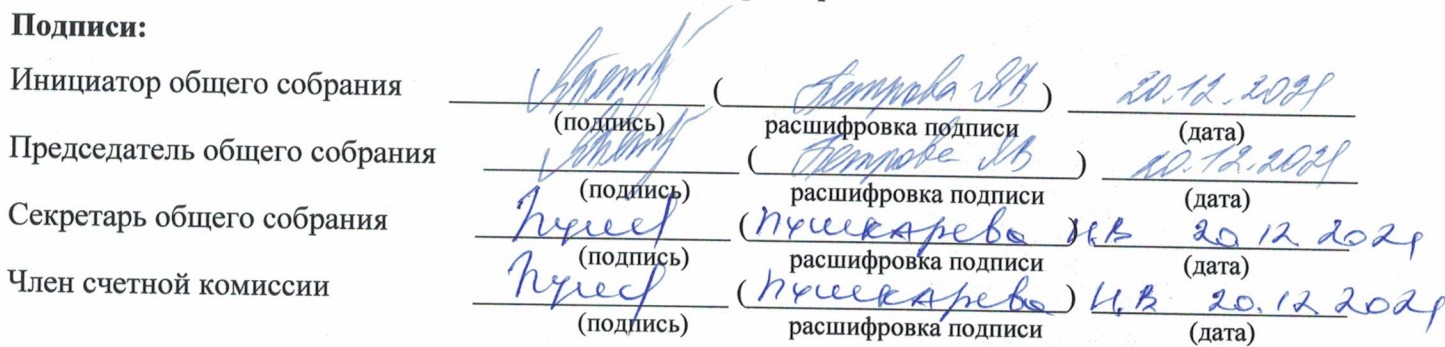 Подписи:
Инициатор общего собрания (Петрова ЯВ) 20.12.2021
(подпись) расшифровка подписи (дата)
Председатель общего собрания (Петрова ЯВ) 20.12.2021
(подпись) расшифровка подписи (дата)
Секретарь общего собрания (Пушкарева) Н.В 20 12 2021
(подпись) расшифровка подписи (дата)
Член счетной комиссии (Пушкарева) Н.В 20.12 2021
(подпись) расшифровка подписи (дата)